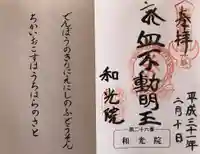 奉拝
不動明王
和光院
平成三十一年
二月十日
第二十六番
和光院
でんぽうのきりにえにしのふどうそん
ちかいおこすはうちはらのさと